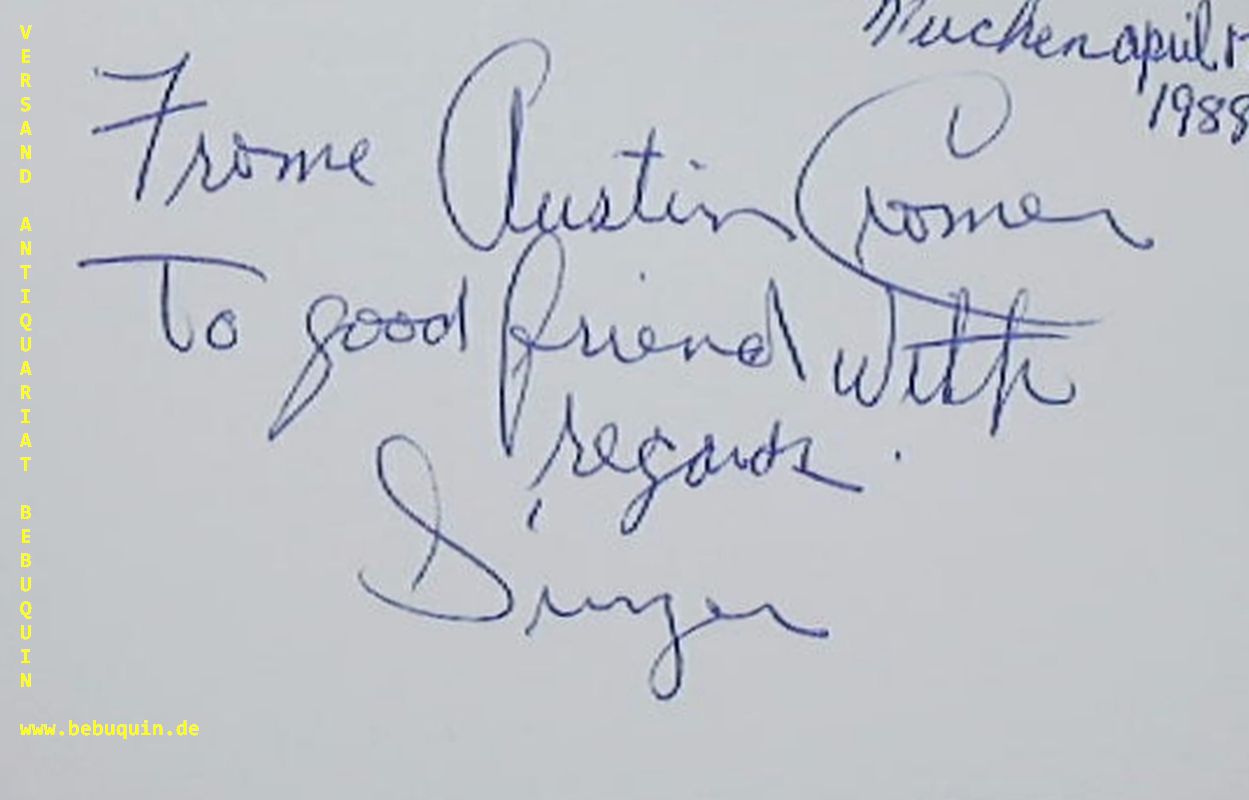 april
1988
Frome Austin Cromer
To good friend with
regards.
Singer
VERSAND ANTIQUARIAT BEBUQUIN
www.bebuquin.de